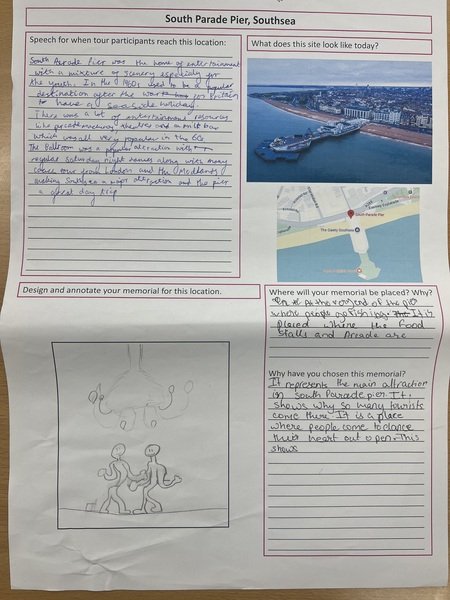 South Parade Pier, Southsea
Speech for when tour participants reach this location:
South Parade Pier was the home of entertainment
with a mixture of scenery especially for
the youth. In the 1950s used to be a popular
destination after the war in Britain
to have a seaside holiday.
There was a lot of entertainment resources
like arcade theatres and a milk bar
which was all very popular in the 60s
The Ballroom was a popular attraction with
regular Saturday night along with many
coach tour from London and the Midlands
making Southsea a major attraction and the pier
a great day trip
What does this site look like today?
South Parade Pier
The Gaiety Southsea
Design and annotate your memorial for this location.
Where will your memorial be placed? Why?
At the very end of the
where people go fishing. It is
placed where the food
stalls and Arcade are
Why have you chosen this memorial?
It represents the main attraction
in South Parade pier. It
shows why so many tourists
come there. It is a place
where people come to dance
heart out open. This
shows